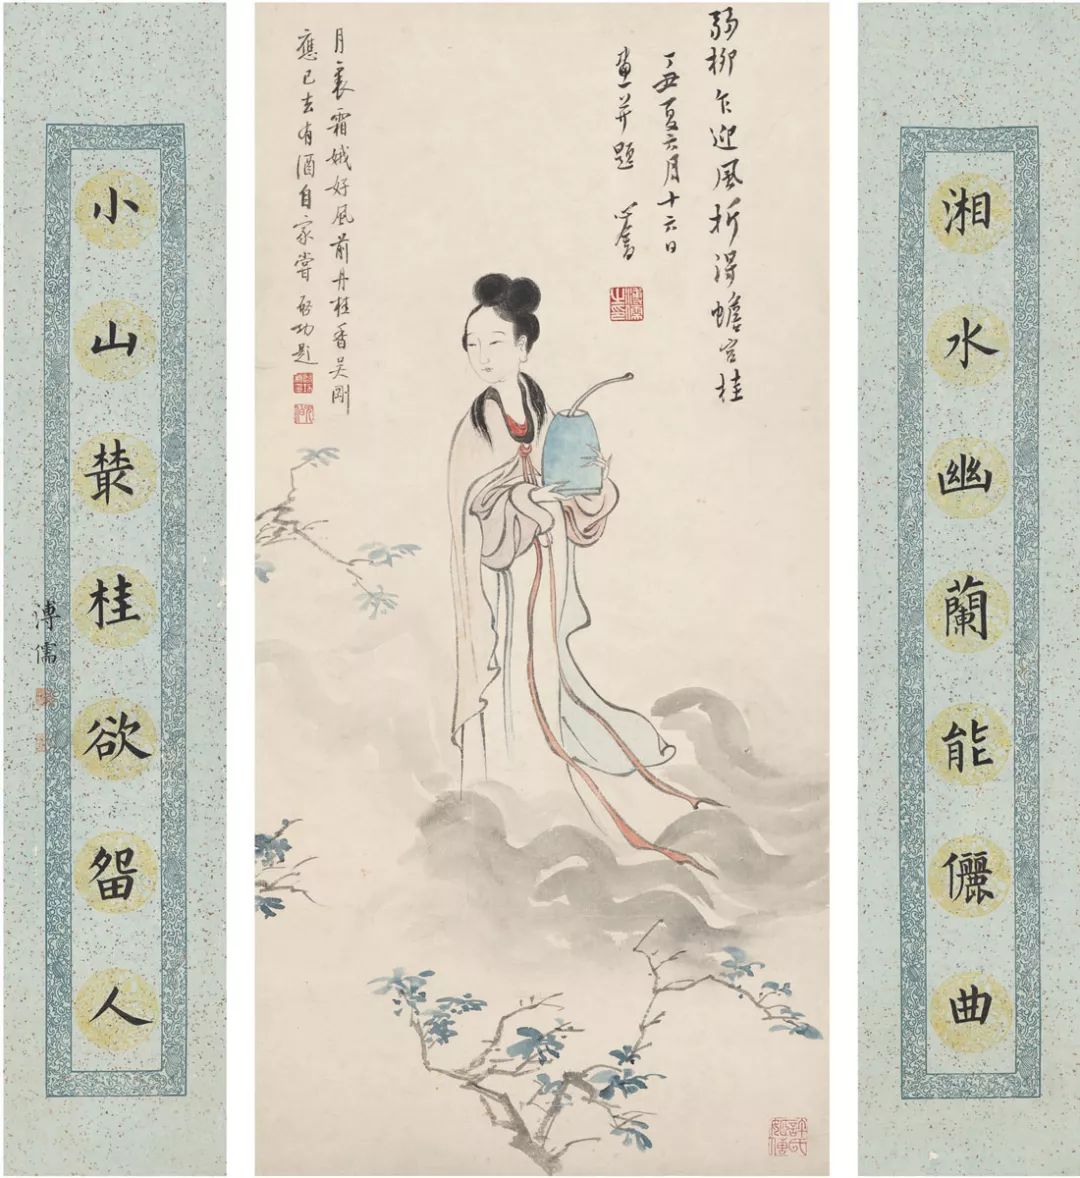 湘水幽蘭能儷曲
弱柳乍迎風折得蟾宮桂
丁丑夏六月十六日
畫并題 心畬
溥儒之印
月裏霜娥好風前丹桂香吳剛
應已去有酒自家嘗 啓功題
許氏姬傳
小山叢桂欲畱人
溥儒